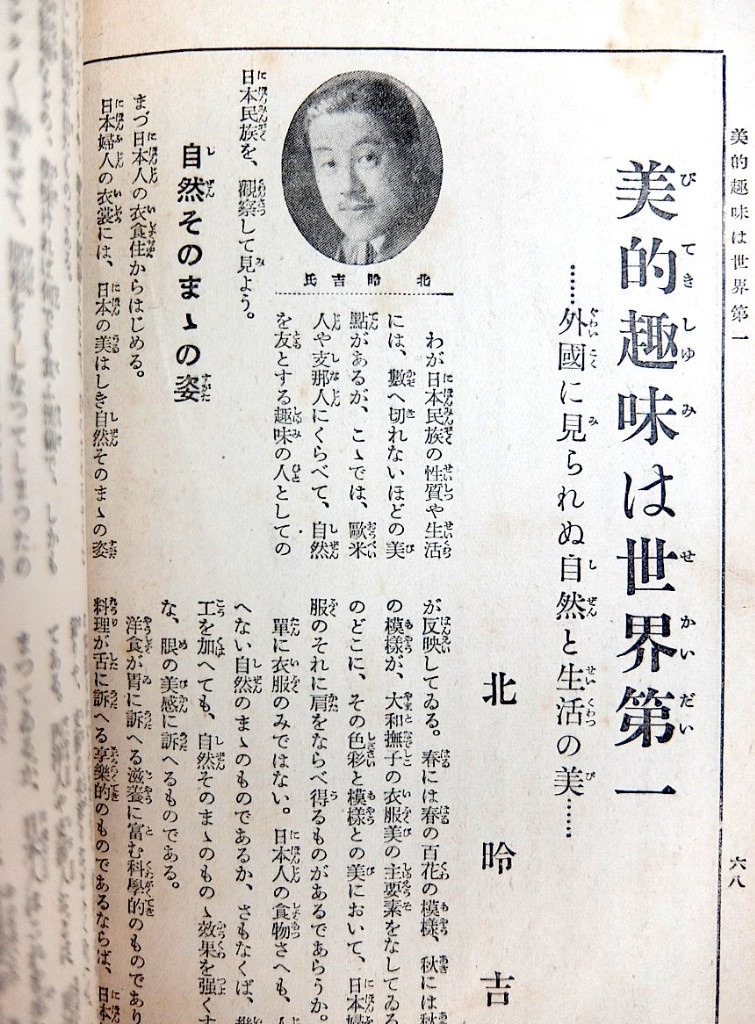 美的趣味は世界第一
六八
美的趣味は世界第一
……外國に見られぬ自然と生活の美……
北昤吉
北昤吉氏
わが日本民族の性質や生活
には、數へ切れないほどの美
點があるが、こゝでは、歐米
人や支那人にくらべて、自然
を友とする趣味の人としての
日本民族を、觀察して見よう。
自然そのまゝの姿
まづ日本人の衣食住からはじめる。
日本婦人の衣裳には、日本の美はしき自然そのまゝの姿
が反映してゐる。春には春の百花の模樣、秋には秋
の模樣が、大和撫子の衣服美の主要素をなしてゐる
のどこに、その色彩と模樣との美において、日本婦
服のそれに肩をならべ得るものがあるであらうか。
單に衣服のみではない。日本人の食物さへも、人
へない自然のまゝのものであるか、さもなくば、幾
工を加へても、自然そのまゝのものゝ效果を強くす
な、眼の美感に訴へるものである。
洋食が胃に訴へる滋養に富む科學的のものであり
料理が舌に訴へる享樂的のものであるならば、日本